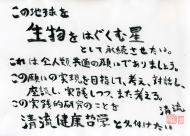 この地球を
生物をはぐくむ星
として永続させたい。
これは全人類共通の願いでありましょう。
この願いの実現を目指して、考え、対話し、
座談し、実践しつつ、また考える。
この実践的研究のことを　清流
清流健康哲学と名付けたい